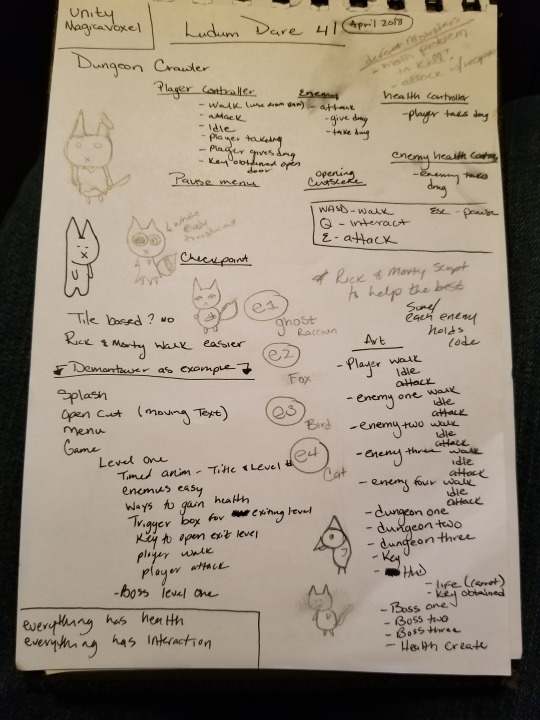 Unity
Magicavoxel
Ludum Dare 41
April 2018
different monsters
- math problem
to kill?
- attack w/weapon
Dungeon Crawler
Player Controller
- walk
- attack
- Idle
- Player takedmg
- Player givesdmg
- Key obtained open
door
Enemy
- attack
- give dmg
- take dmg
Health Controller
- player takes dmg
enemy health
- enemy takes
dmg
Pause menu
opening
Cutscene
WASD - walk
Esc - pause
Q - interact
E - attack
whole
body
translucent
Checkpoint
* Rick & Morty script
to help the best
Some/
each enemy
holds
code
Tile based? NO
Rick & Morty walk easier
Demontower as example
e1
ghost
Raccoon
e2
Fox
e3
Bird
e4
Cat
Splash
Open Cut (moving Text)
menu
Game
Level One
Timed anim - Title & Level #
enemies easy
Ways to gain health
Trigger box for exiting level
Key to open exit level
player walk
player attack
- Boss level one
Art
- Player walk
Idle
attack
- enemy one walk
Idle
attack
- enemy two walk
Idle
attack
- enemy three walk
idle
attack
- enemy four walk
Idle
attack
- dungeon one
- dungeon two
- dungeon three
- Key
- HUD
- life (carrot)
- Key obtained
- Boss one
- Boss two
- Boss three
- Health Create
everything has health
everything has interaction